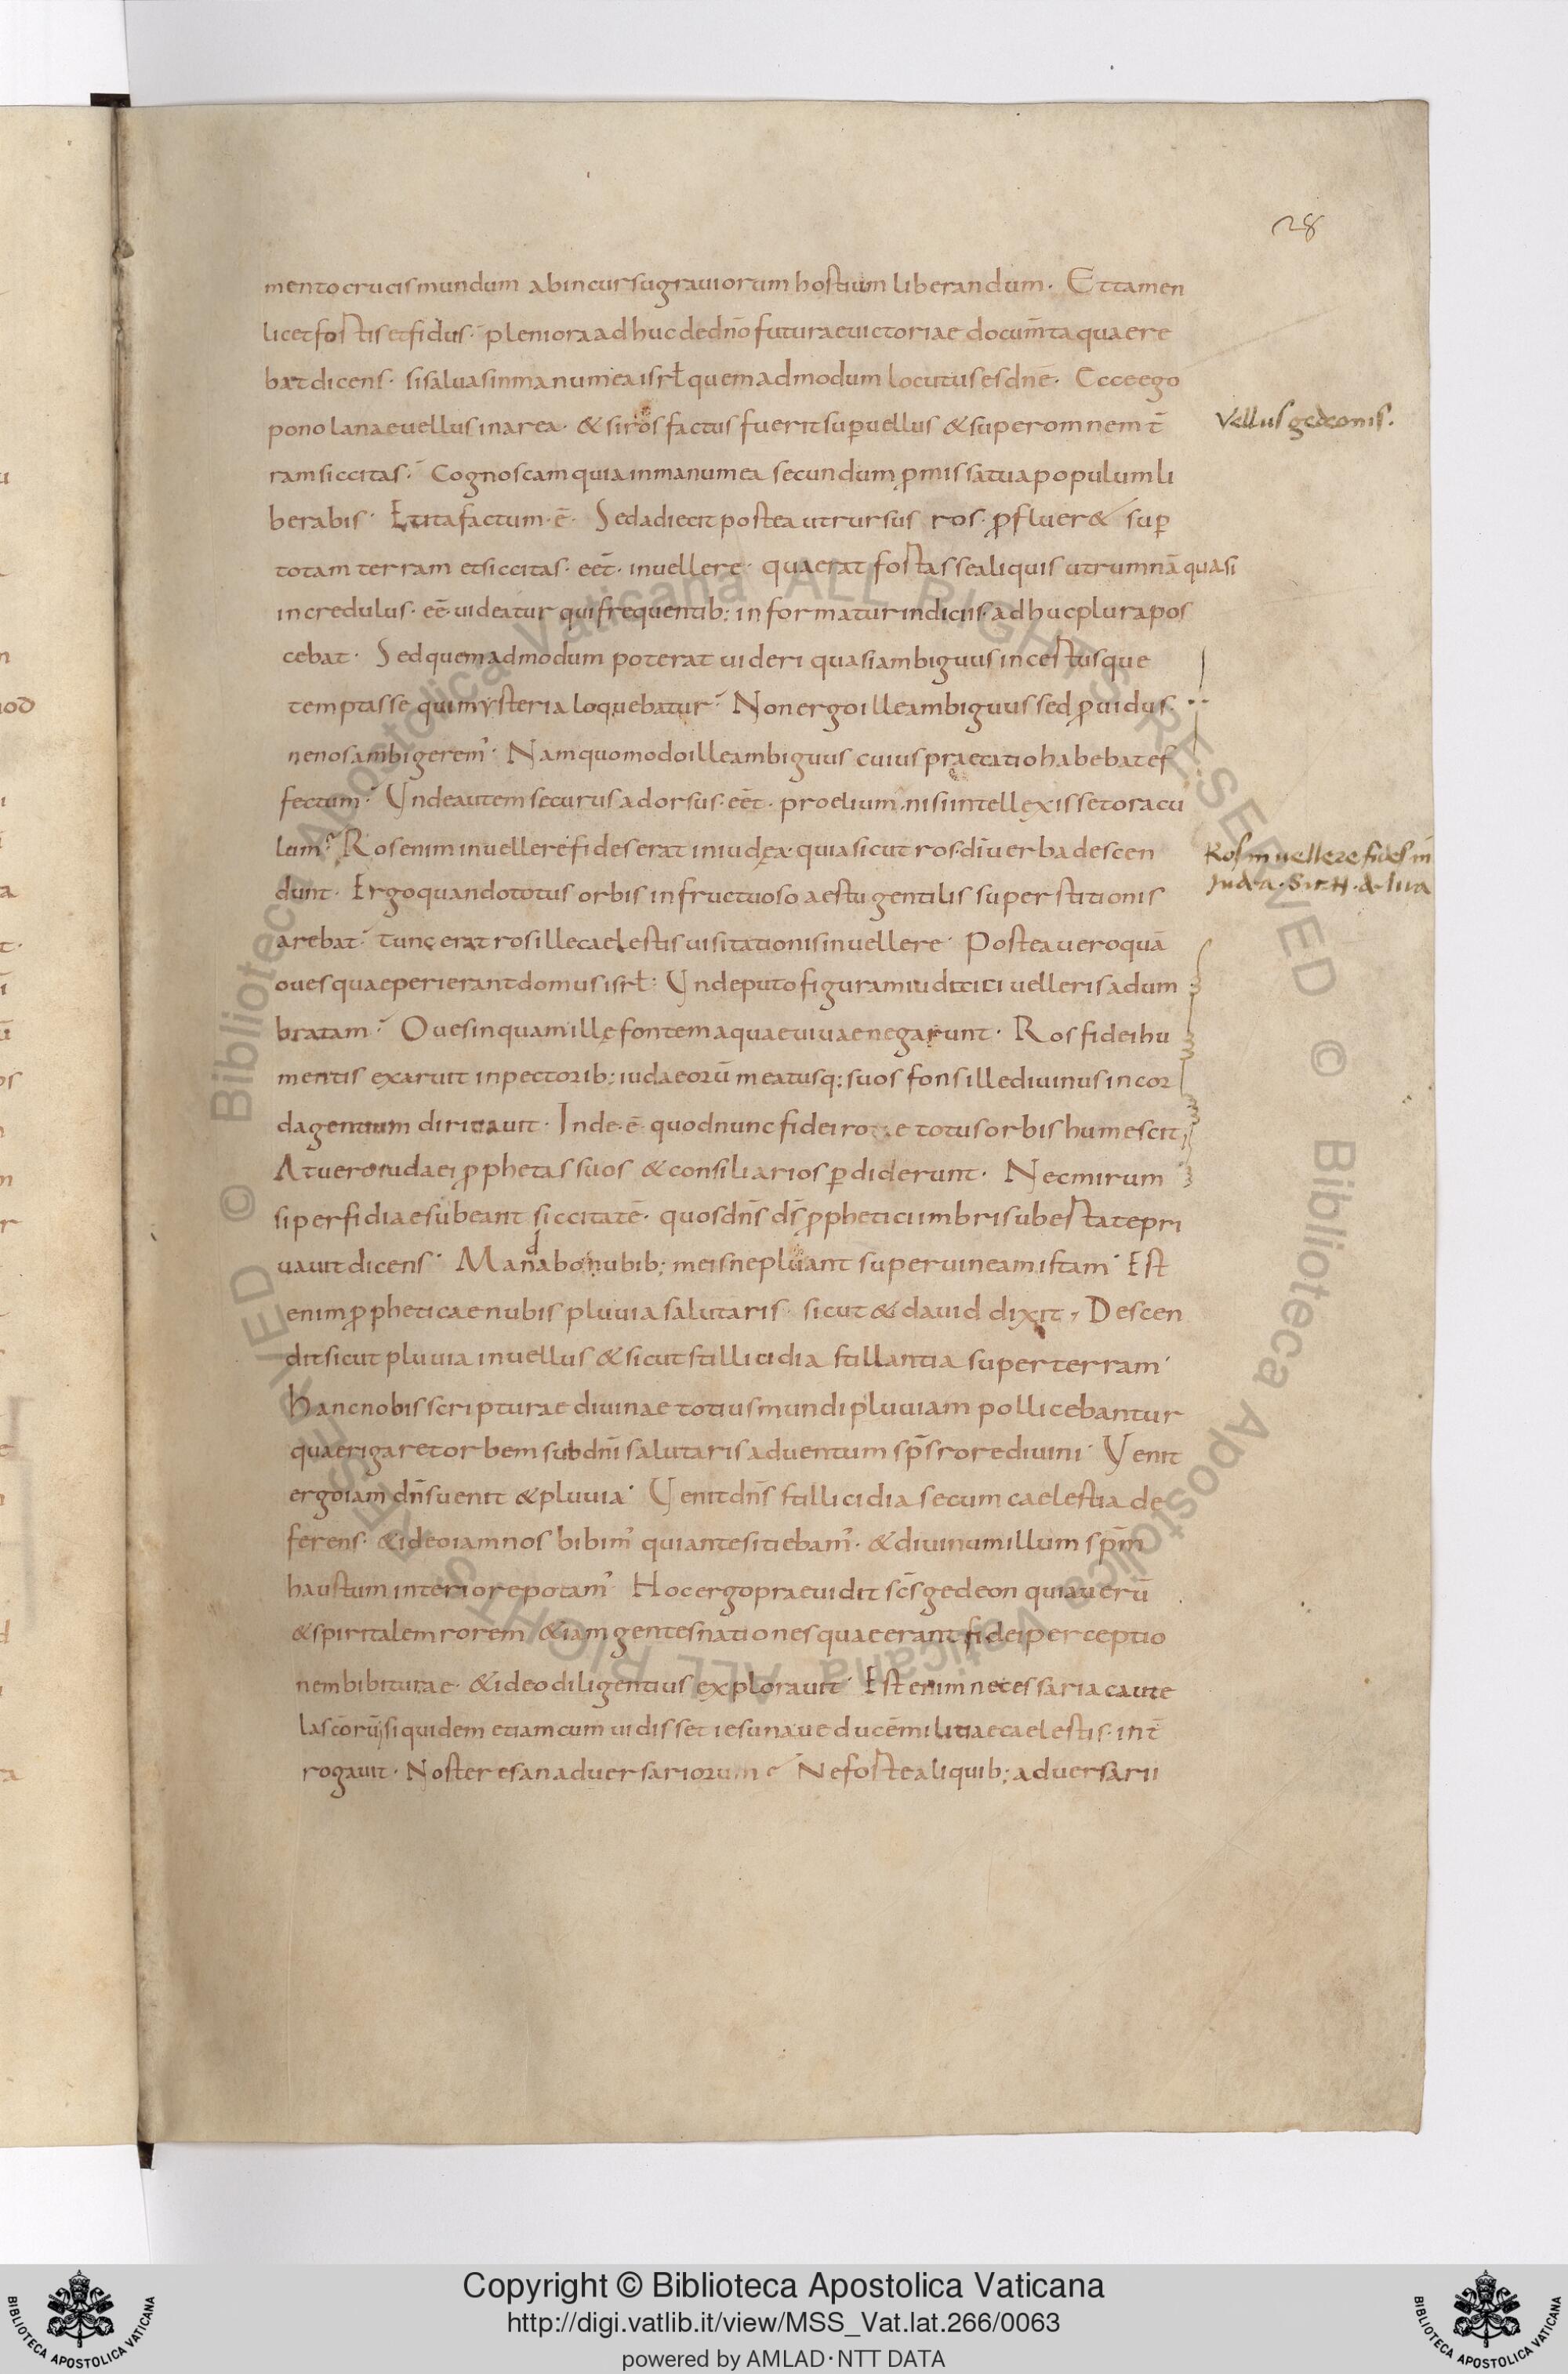 28
mento crucis mundum ab incursu grauiorum hostium liberandum. Et tamen
licet fortis et fidus. pleniora adhuc de dn̄o futurae uictoriae docum̄ta quaere
bat dicens. si saluas in manu mea isrł quemadmodum locutus es dnē. Ecce ego
pono lanae uellus in area. & si ros factus fuerit sup̄ uellus & super omnem t̄
Vellus gedeonis.
ram siccitas. Cognoscam quia in manu mea secundum p̱missa tua populum li
berabis. Et ita factum. ē. Sed adiecit postea ut rursus ros. p̱fluer& sup̄
totam terram et siccitas. eēt. in uellere. quaerat fortasse aliquis utrumnā quasi
incredulus. eē. uideatur qui frequentib; informatur indiciis. adhuc plura pos
cebat. Sed quemadmodum poterat uideri quasi ambiguus incertusque
temptasse qui mysteria loquebatur. Non ergo ille ambiguus sed p̱uidus.
ne nos ambigerem'. Nam quomodo ille ambiguus cuius praecatio habebat ef
fectum. Unde autem securus adorsus. eēt. proelium. nisi intellexisset oracu
lum. Ros enim in uellere fides erat in iudęa. quia sicut ros. dī uerba descen
Ros in uellere fides in
Judæa.
dunt. Ergo quando totus orbis infructuoso aestu gentilis superstitionis
arebat. tunc erat ros ille caelestis uisitationis in uellere. Postea uero quā
oues quae perierant domus isrł. Unde puto figuram iudaici uelleris adum
bratam. Oues inquam illę fontem aquae uiuae negarunt. Ros fidei hu
mentis exaruit in pectorib; iudaeorū meatusq; suos fons ille diuinus in cor
da gentium diriuauit. Inde. ē. quod nunc fidei rore totus orbis humescit;
At uero iudaei p̱phetas suos & consiliarios p̱diderunt. Nec mirum
si perfidiae subeant siccitatē. quos dn̄s d̄s p̱phetici imbris ubertate pri
uauit dicens. Mandabo nubib; meis ne pluant super uineam istam. Est
enim p̱pheticae nubis pluuia salutaris. sicut & dauid dixit, Descen
dit sicut pluuia in uellus & sicut stillicidia stillantia super terram.
hanc nobis scripturae diuinae totius mundi pluuiam pollicebantur
quae rigaret orbem sub dn̄i salutaris aduentum sp̄s rore diuini. Venit
ergo iam dn̄s uenit & pluuia. Venit dn̄s stillicidia secum caelestia de
ferens. & ideo iam nos bibim' qui ante sitiebam'. & diuinum illum sp̄m
haustu interiore potam' Hoc ergo praeuidit sc̄s gedeon quia uerū
& spiritalem rorem & iam gentes nationes quae erant fidei perceptio
nem bibiturae. & ideo diligentius explorauit. Est enim necessaria caute
la sc̄orū; siquidem etiam cum uidisset iesu naue ducē militiae caelestis. int̄
rogauit. Noster es an aduersariorum Ne forte aliquib; aduersarii
Copyright © Biblioteca Apostolica Vaticana
http://digi.vatlib.it/view/MSS_Vat.lat.266/0063
powered by AMLAD·NTT DATA
BIBLIOTECA APOSTOLICA VATICANA
BIBLIOTECA APOSTOLICA VATICANA